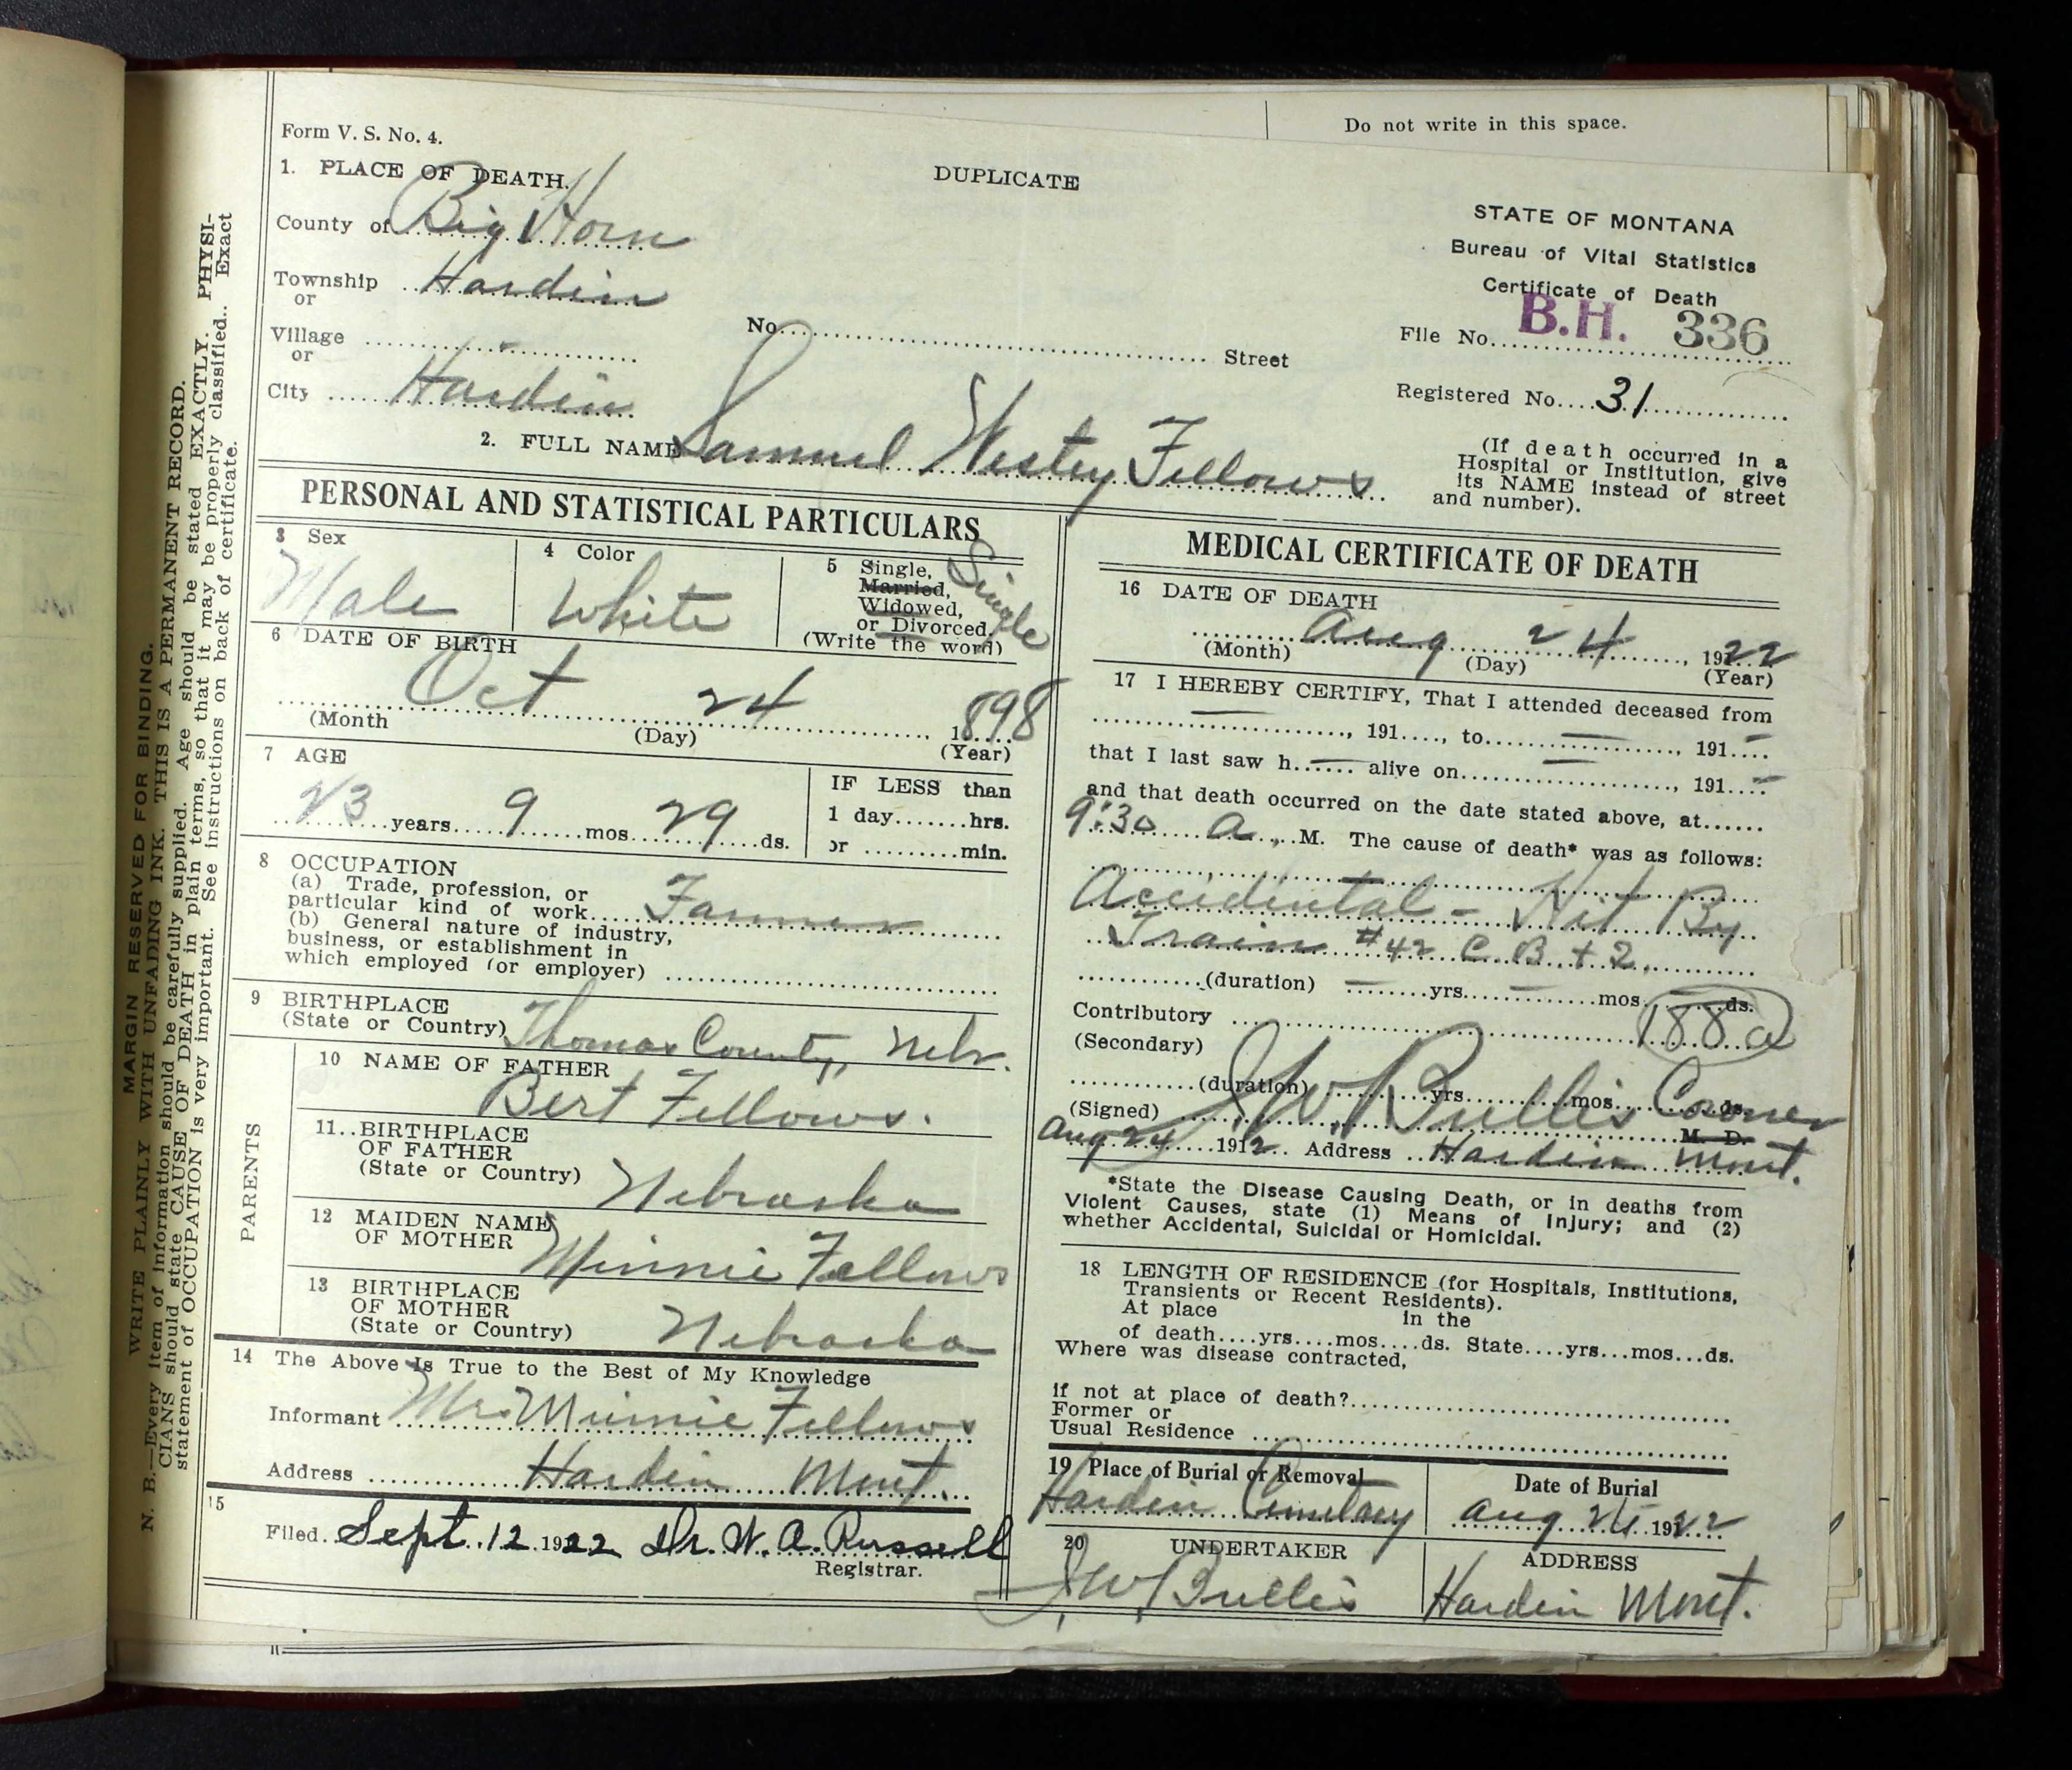 Do not write in this space.
Form V. S. No. 4.
DUPLICATE
1. PLACE OF DEATH.
County of Big Horn
Township Hardin
or
Village
or
City Hardin
No. Street
STATE OF MONTANA
Bureau of Vital Statistics
Certificate of Death
File No. B.H. 336
Registered No. 31
(If death occurred in a
Hospital or Institution, give
its NAME instead of street
and number).
2. FULL NAME Samuel Westey Fellows
PERSONAL AND STATISTICAL PARTICULARS
3 Sex
Male
4 Color
White
5 Single,
Married,
Widowed,
or Divorced.
(Write the word)
Single
6 DATE OF BIRTH
Oct 24 1898
(Month (Day) (Year)
7 AGE
23 years 9 mos. 29 ds.
IF LESS than
1 day.......hrs.
or .........min.
8 OCCUPATION
(a) Trade, profession, or
particular kind of work Farmer
(b) General nature of industry,
business, or establishment in
which employed (or employer)
9 BIRTHPLACE
(State or Country) Thomas County, Nebr.
PARENTS
10 NAME OF FATHER
Bert Fellows.
11. BIRTHPLACE
OF FATHER
(State or Country) Nebraska
12 MAIDEN NAME
OF MOTHER Minnie Fellows
13 BIRTHPLACE
OF MOTHER
(State or Country) Nebraska
14 The Above is True to the Best of My Knowledge
Informant Mrs. Minnie Fellows
Address Hardin Mont.
15
Filed. Sept. 12 1922 Dr. W. A. Russell
Registrar.
MEDICAL CERTIFICATE OF DEATH
16 DATE OF DEATH
Aug 24, 1922
(Month) (Day) (Year)
17 I HEREBY CERTIFY, That I attended deceased from
— , 191...., to — , 191 —
that I last saw h — alive on — , 191 —
and that death occurred on the date stated above, at......
9:30 A. M. The cause of death* was as follows:
Accidental - Hit By
Train #42 C B + Q.
(duration) — yrs. — mos. — ds.
Contributory 188a
(Secondary)
(duration) yrs. mos. ds.
(Signed) J W Bullis Coroner
M. D.
Aug 24 1912 Address Hardin Mont.
*State the Disease Causing Death, or in deaths from
Violent Causes, state (1) Means of Injury; and (2)
whether Accidental, Suicidal or Homicidal.
18 LENGTH OF RESIDENCE (for Hospitals, Institutions,
Transients or Recent Residents).
At place in the
of death....yrs....mos....ds. State....yrs...mos...ds.
Where was disease contracted,
if not at place of death?
Former or
Usual Residence
19 Place of Burial or Removal
Hardin Cemetary
Date of Burial
Aug 1922
20 UNDERTAKER
J.W. Bullis
ADDRESS
Hardin Mont.
MARGIN RESERVED FOR BINDING.
WRITE PLAINLY WITH UNFADING INK. THIS IS A PERMANENT RECORD.
N. B.—Every item of information should be carefully supplied. Age should be stated EXACTLY. PHYSI-
CIANS should state CAUSE OF DEATH in plain terms, so that it may be properly classified.. Exact
statement of OCCUPATION is very important. See instructions on back of certificate.